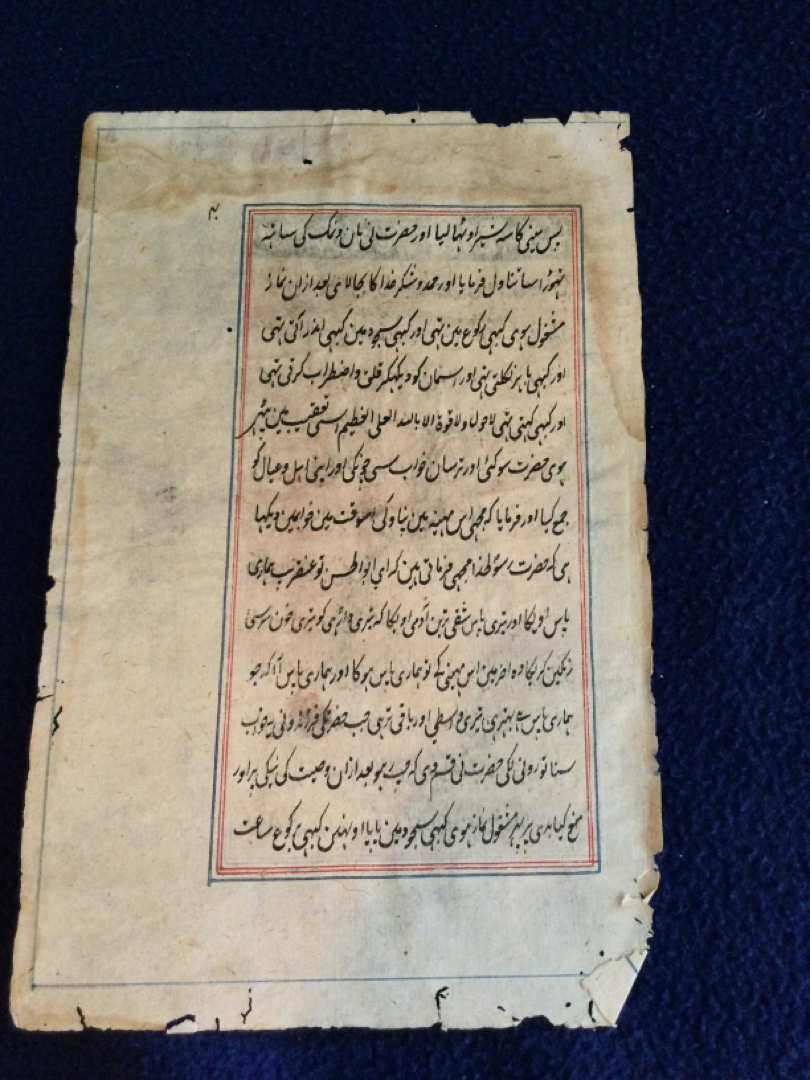 پس مینی کاسه شیر اوٹہا لیا اور حضرت نی نان و نمک کی ساتہه
تہوڑا سا تناول فرمایا اور حمد و شکر خدا کا بجا لای بعد ازان نماز
مشغول ہوی کبہی رکوع مین تہی اور کبہی سجدہ مین کبہی اندر آتی تہی
اور کبہی باہر نکلتی تہی اور اسمان کو دیکہکر قلق و اضطراب کرتی تہی
اور کبہی کہتی تہی لا حول ولا قوة الا بالله العلی العظیم اسی تعقیب مین بیٹہی
ہوی حضرت سو گئی اور ترسان خواب سی چونکی اور اپنی اہل و عیال کو
جمع کیا اور فرمایا کہ مجہی اس مہینہ مین نپاوکی اسوقت مین خوابمین دیکہا
ہی کہ حضرت رسولخدا مجہی فرماتی ہین کہ ای ابو الحسن تو عنقریب ہماری
پاس اویکا اور تیری پاس شقی ترین آدمی اویکا کہ تیری داڑہی کو تیری خون سرسی
رنکین کریکا وہ اخر مین اس مہینی کے تو ہماری پاس ہوکا اور ہماری پاس آ کہ جو
ہماری پاس ہے بہتر ہی تیری واسطی اور باقی تر ہی جب حضرتکی فرزندونی یہ خواب
سنا تو رونی لکی حضرت نی قسم دی کہ چپ رہو بعد ازان وصیت کی نیکی پر اور
منع کیا بدی پر پہر مشغول نماز ہوی کبہی سجود مین پایا اونہین کبہی رکوع ساعت